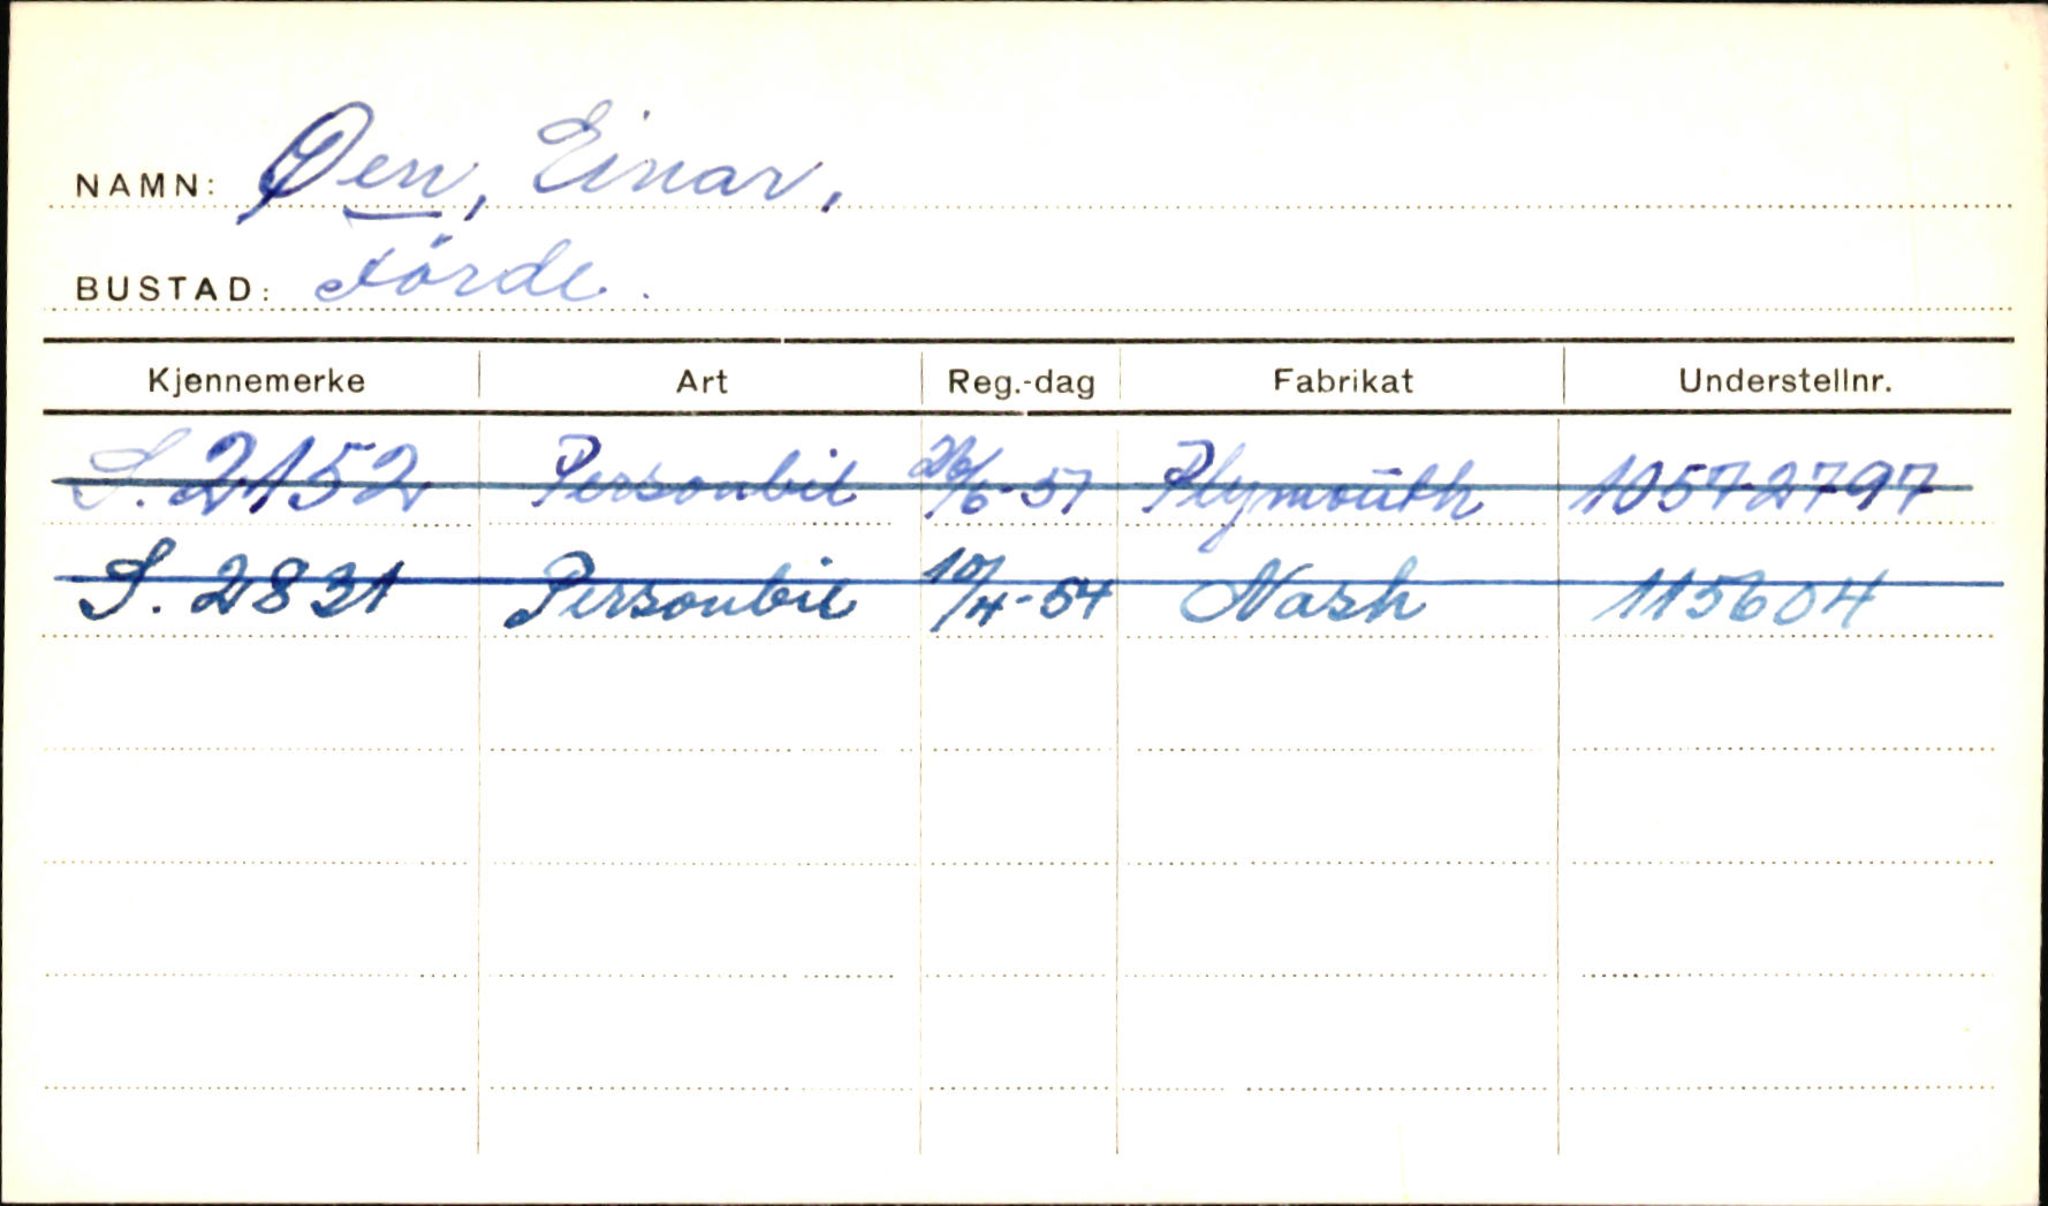 NAMN: Øen, Einar,
BUSTAD: Förde.
Kjennemerke Art Reg.-dag Fabrikat Understellnr.
S. 2152 Personbil 26/6-51 Plymouth 10572797
S. 2831 Personbil 10/4-54 Nash 115604